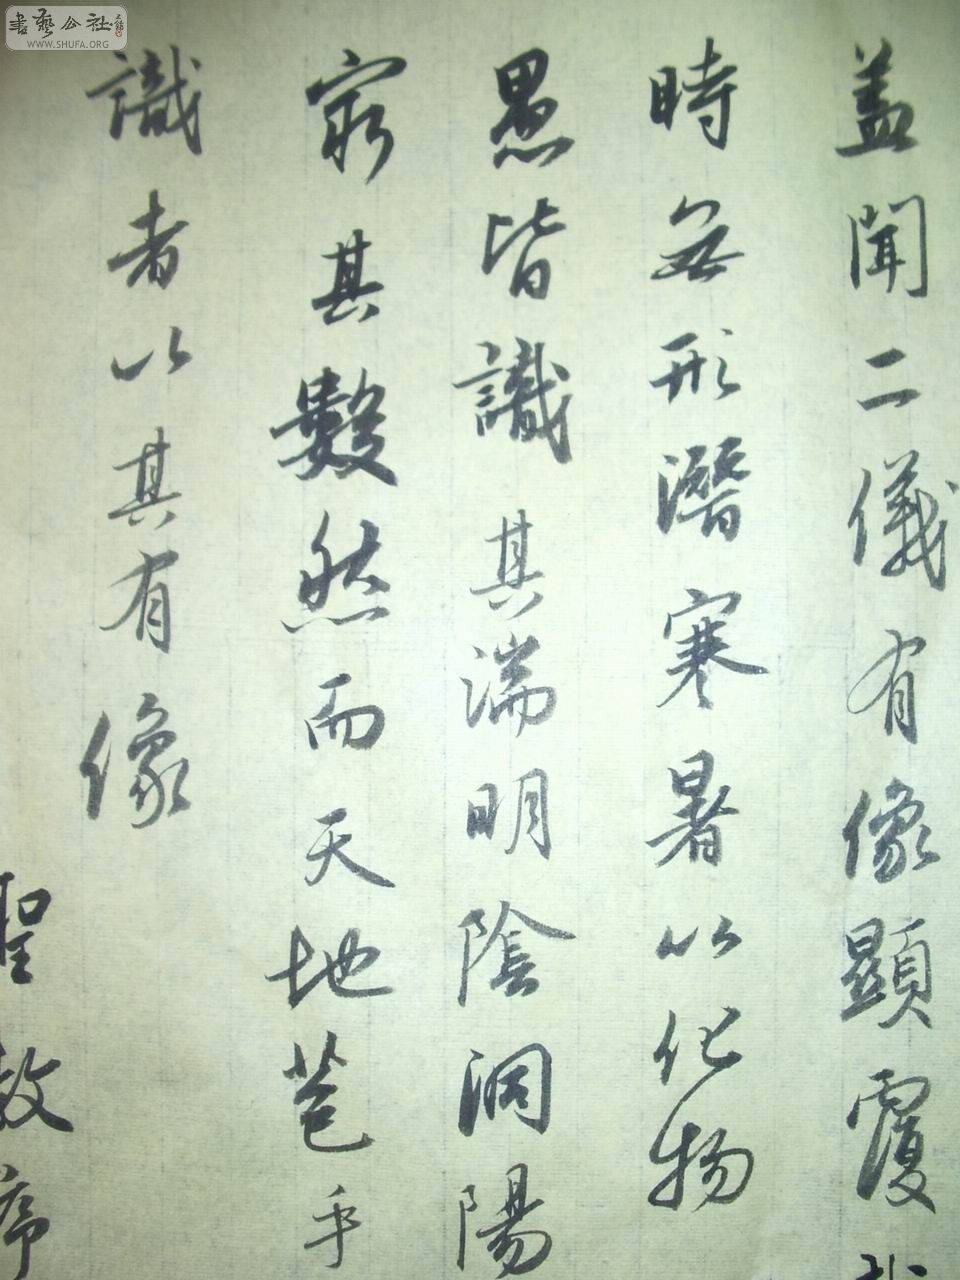 書藝公社
WWW.SHUFA.ORG
盖聞二儀有像顯覆
時無形潛寒暑以化物
愚皆識其湍明陰洞陽
窮其數然而天地苞乎
識者以其有像
聖教序